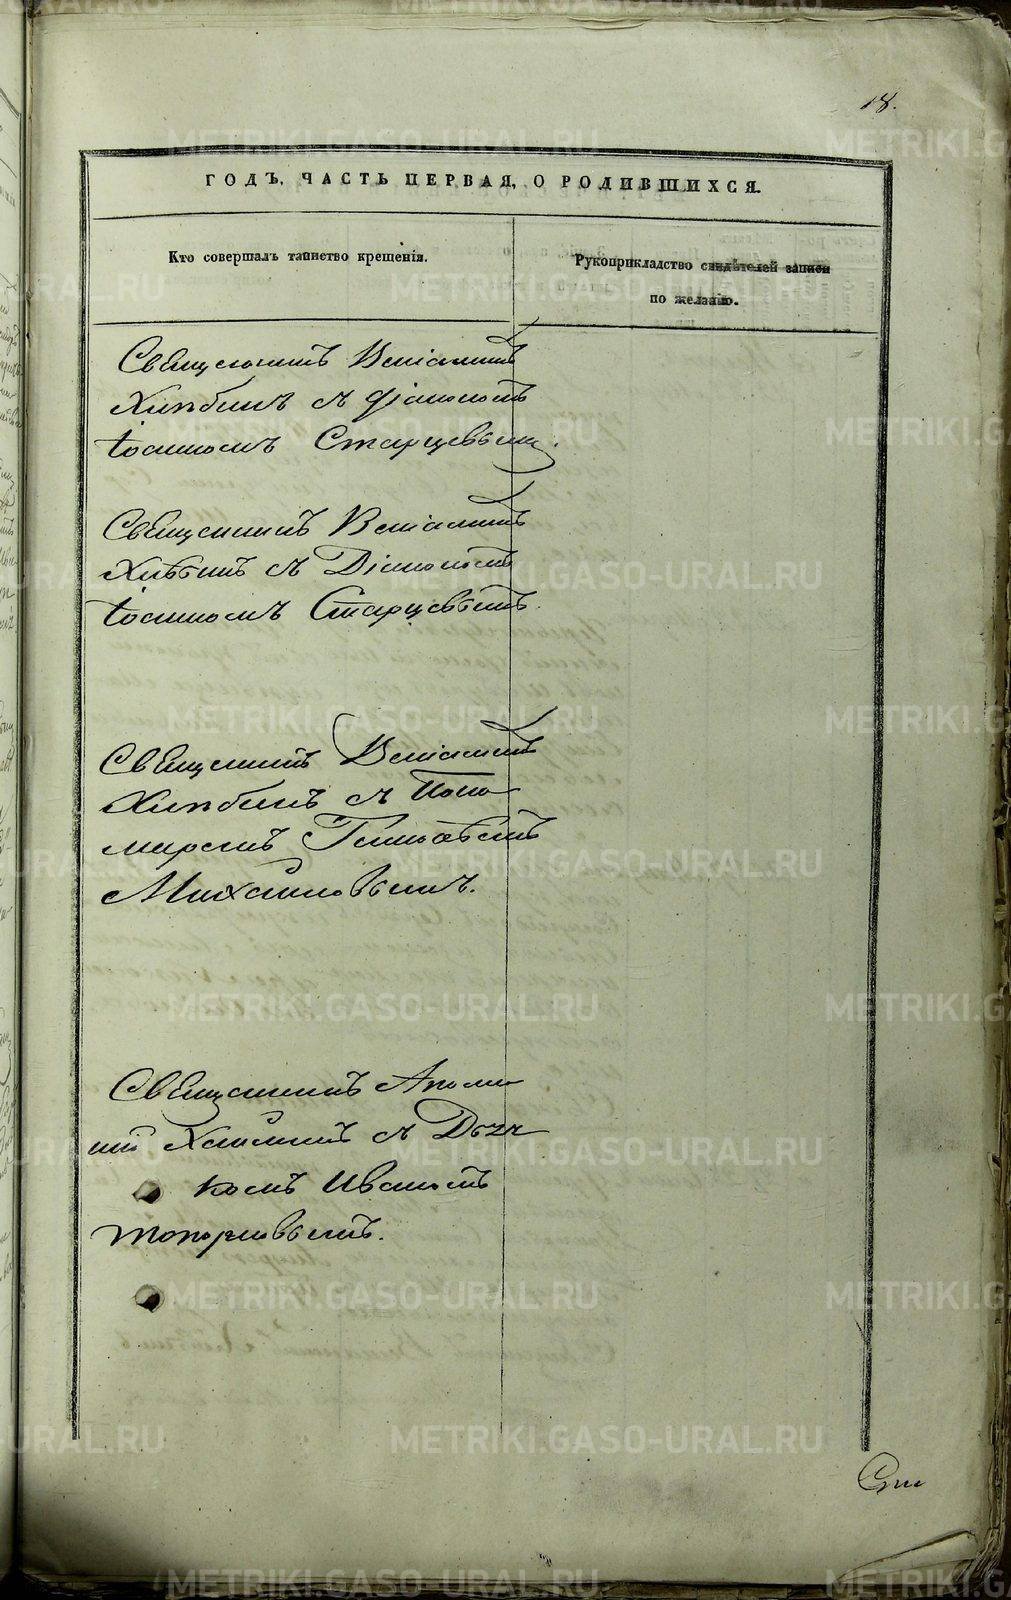 18.
ГОДЪ, ЧАСТЬ ПЕРВАЯ, О РОДИВШИХСЯ.
Кто совершалъ таинство крещенія.
Рукоприкладство свидѣтелей записи
по желанію.
Священникъ Веніаминъ
Хлѣбинъ съ Діакономъ
Іоанномъ Старцевымъ.
Священникъ Веніаминъ
Хлѣбинъ съ Діакономъ
Іоанномъ Старцевымъ.
Священникъ Веніаминъ
Хлѣбинъ съ Поно
маремъ
Михайловымъ.
Священникъ Аполло
ній съ Дьяч
комъ Иваномъ
Топорковымъ.
METRIKI.GASO-URAL.RU